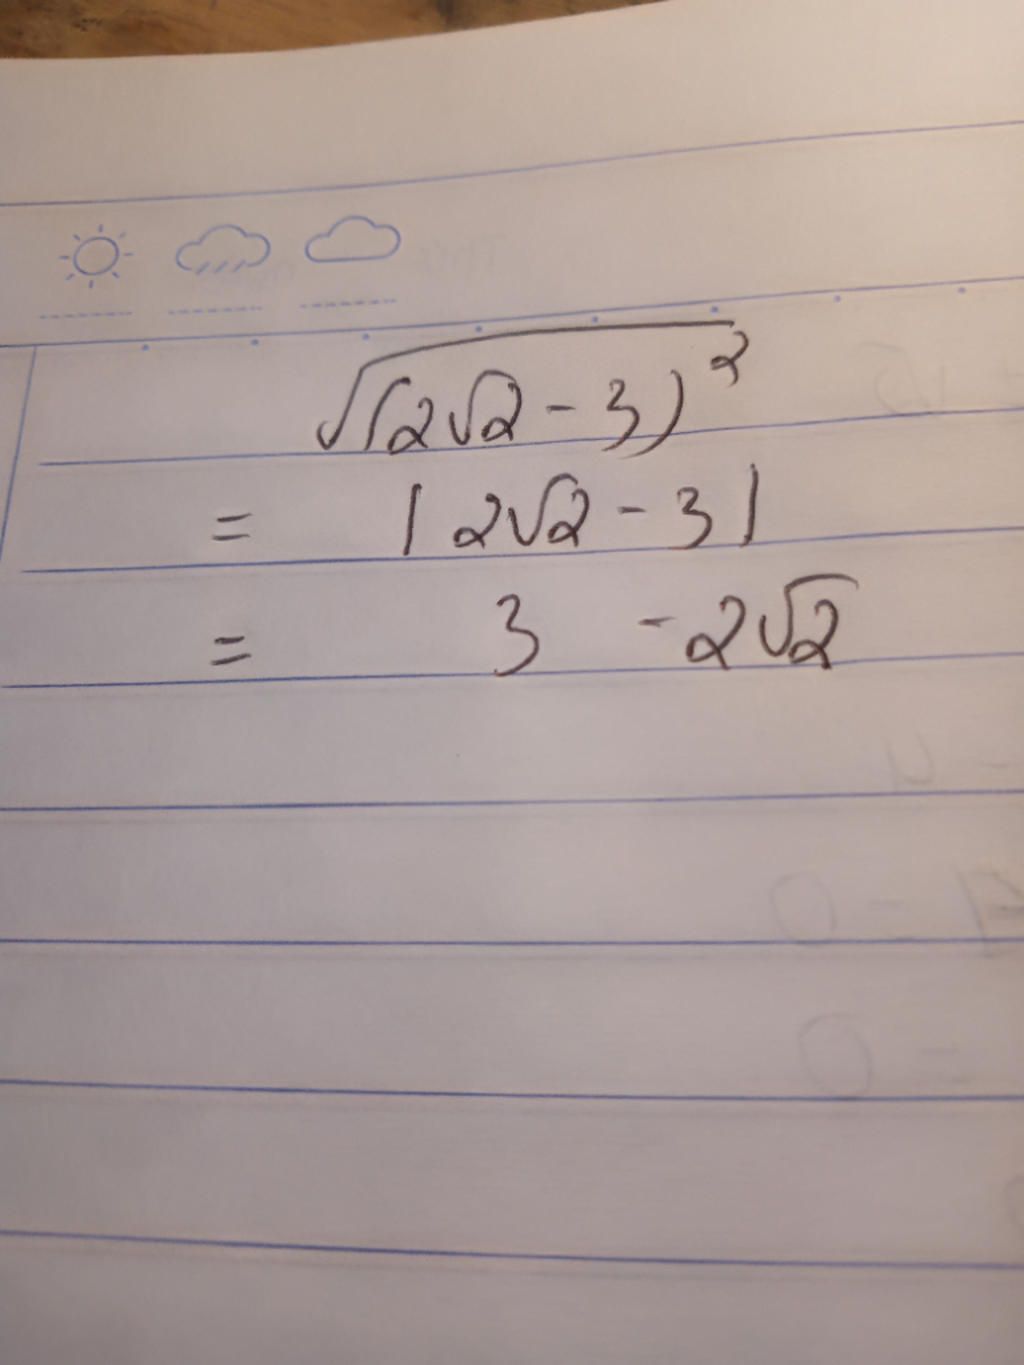 √(2√2 - 3)²
= |2√2 - 3|
= 3 - 2√2